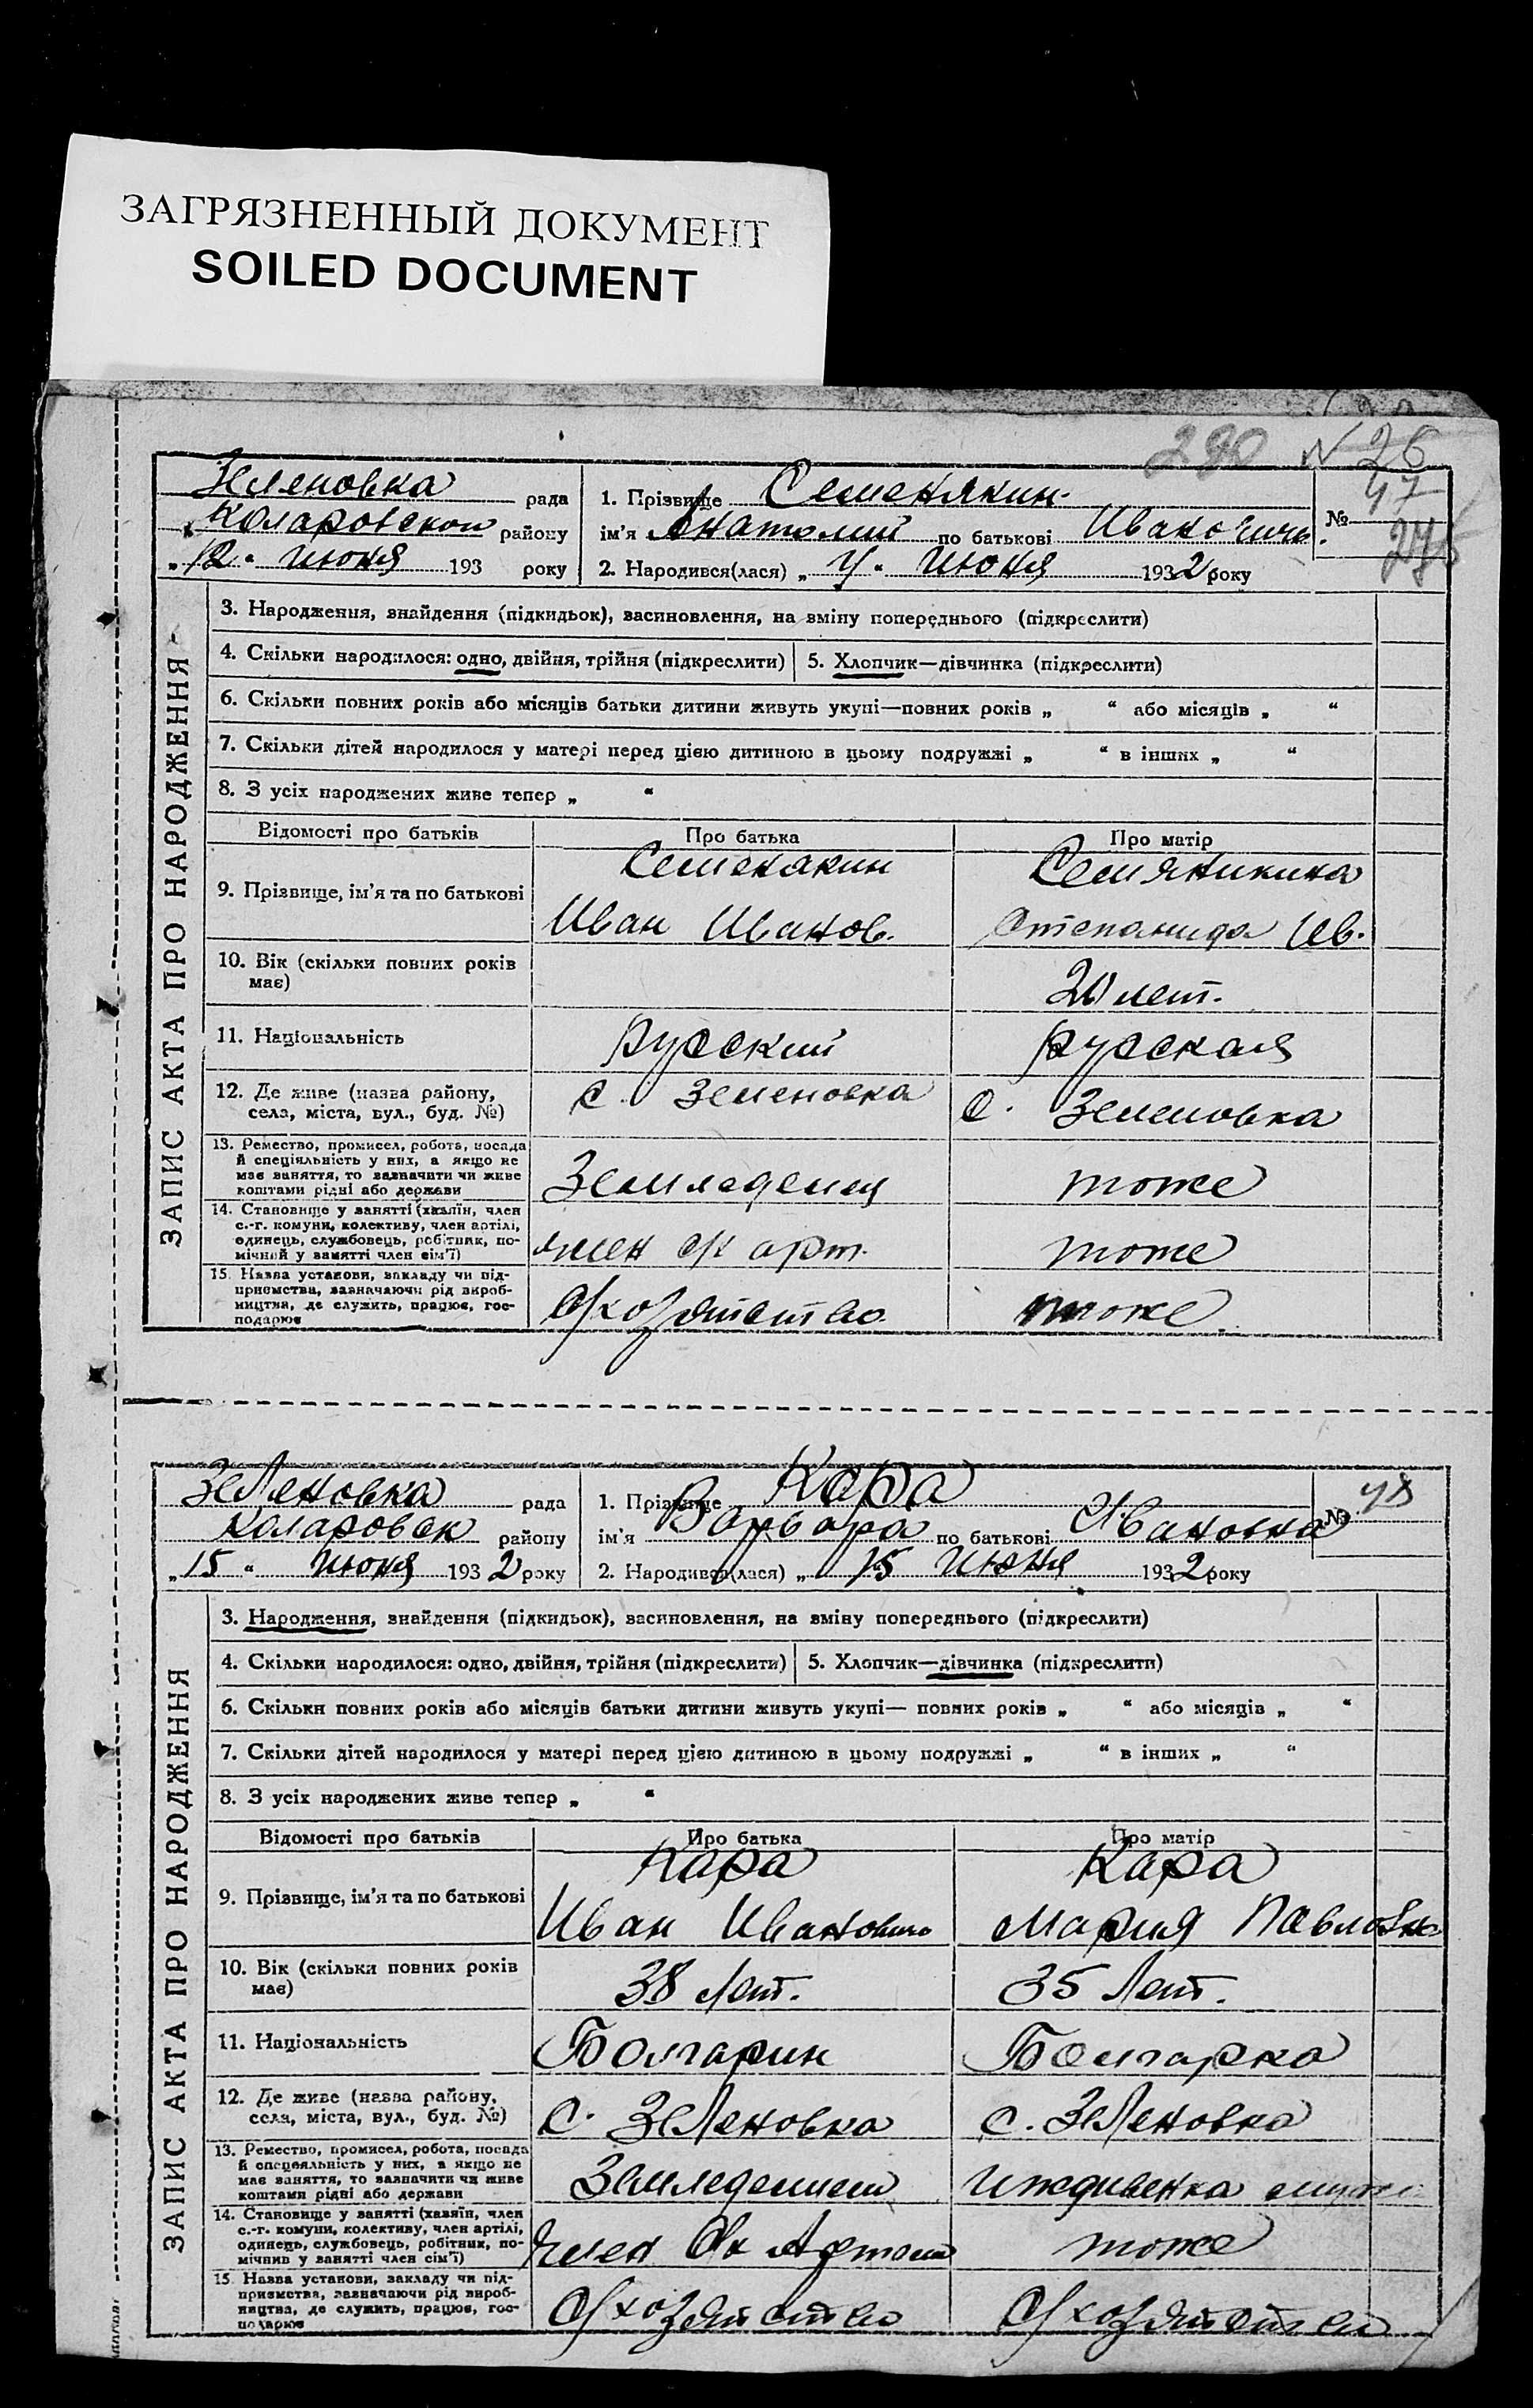 ЗАГРЯЗНЕННЫЙ ДОКУМЕНТ
SOILED DOCUMENT
280 N 26
Зеленовка рада
Коларовской району
„12“ июня 193 року
1. Прізвище Семенякин
ім'я Анатолий по батькові Иванович
2. Народився(лася) „ “ июня 1932 року
№ 47
275
ЗАПИС АКТА ПРО НАРОДЖЕННЯ
3. Народження, знайдення (підкидьок), засиновлення, на зміну попереднього (підкреслити)
4. Скільки народилося: одно, двійня, трійня (підкреслити) 5. Хлопчик—дівчинка (підкреслити)
6. Скільки повних років або місяців батьки дитини живуть укупі—повних років „ “ або місяців „ “
7. Скільки дітей народилося у матері перед цією дитиною в цьому подружжі „ “ в інших „ “
8. З усіх народжених живе тепер „ “
Відомості про батьків Про батька Про матір
9. Прізвище, ім'я та по батькові Семенакин Семяникина
Иван Иванов. Степанида Ив.
10. Вік (скільки повних років
має) лет.
11. Національність русский русская
12. Де живе (назва району,
села, міста, вул., буд. №) с. Зеленовка с. Зеленовка
13. Ремество, промисел, робота, посада
й спеціяльність у них, а якщо не
має заняття, то зазначити чи живе
коштами рідні або держави Земледелец тоже
14. Становище у занятті (хазяїн, член
с.-г. комуни, колективу, член артілі,
одинець, службовець, робітник, по-
мічний у занятті член сім'ї) член с/х арт. тоже
15. Назва установи, закладу чи під-
приємства, зазначаючи рід вироб-
ництва, де служить, працює, гос-
подарює с/хозяйство тоже
Зеленовка рада
Коларовск району
„15“ июня 1932 року
1. Прізвище Кара
ім'я Варвара по батькові Ивановна
2. Народився(лася) „15 июня 1932 року
№ 48
ЗАПИС АКТА ПРО НАРОДЖЕННЯ
3. Народження, знайдення (підкидьок), засиновлення, на зміну попереднього (підкреслити)
4. Скільки народилося: одно, двійня, трійня (підкреслити) 5. Хлопчик—дівчинка (підкреслити)
6. Скільки повних років або місяців батьки дитини живуть укупі— повних років „ “ або місяців „ “
7. Скільки дітей народилося у матері перед цією дитиною в цьому подружжі „ “ в інших „ “
8. З усіх народжених живе тепер „ “
Відомості про батьків Про батька Про матір
9. Прізвище, ім'я та по батькові Кара Кара
Иван Иванович Мария Павловна
10. Вік (скільки повних років
має) 38 лет. 35 лет.
11. Національність Болгарин Болгарка
12. Де живе (назва району,
села, міста, вул., буд. №) с. Зеленовка с. Зеленовка
13. Ремество, промисел, робота, посада
й спеціяльність у них, а якщо не
має заняття, то зазначити чи живе
коштами рідні або держави Земледелием Иждивенка мужа
14. Становище у занятті (хазяїн, член
с.-г. комуни, колективу, член артілі,
одинець, службовець, робітник, по-
мічний у занятті член сім'ї) член с/х Артели тоже
15. Назва установи, закладу чи під-
приємства, зазначаючи рід вироб-
ництва, де служить, працює, гос-
подарює с/хозяйство с/хозяйство